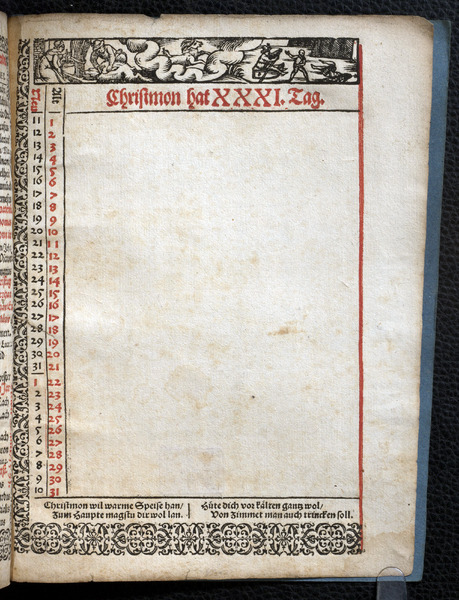 New Alt
Christmon hat XXXI. Tag.
11 1
12 2
13 3
14 4
15 5
16 6
17 7
18 8
19 9
20 10
21 11
22 12
23 13
24 14
25 15
26 16
27 17
28 18
29 19
30 20
31 21
1 22
2 23
3 24
4 25
5 26
6 27
7 28
8 29
9 30
10 31
Christmon wil warme Speise han/
Zum Haupte magstu dir wol lan.
Hüte dich vor kälten gantz wol/
Von Zimmet man auch trincken soll.